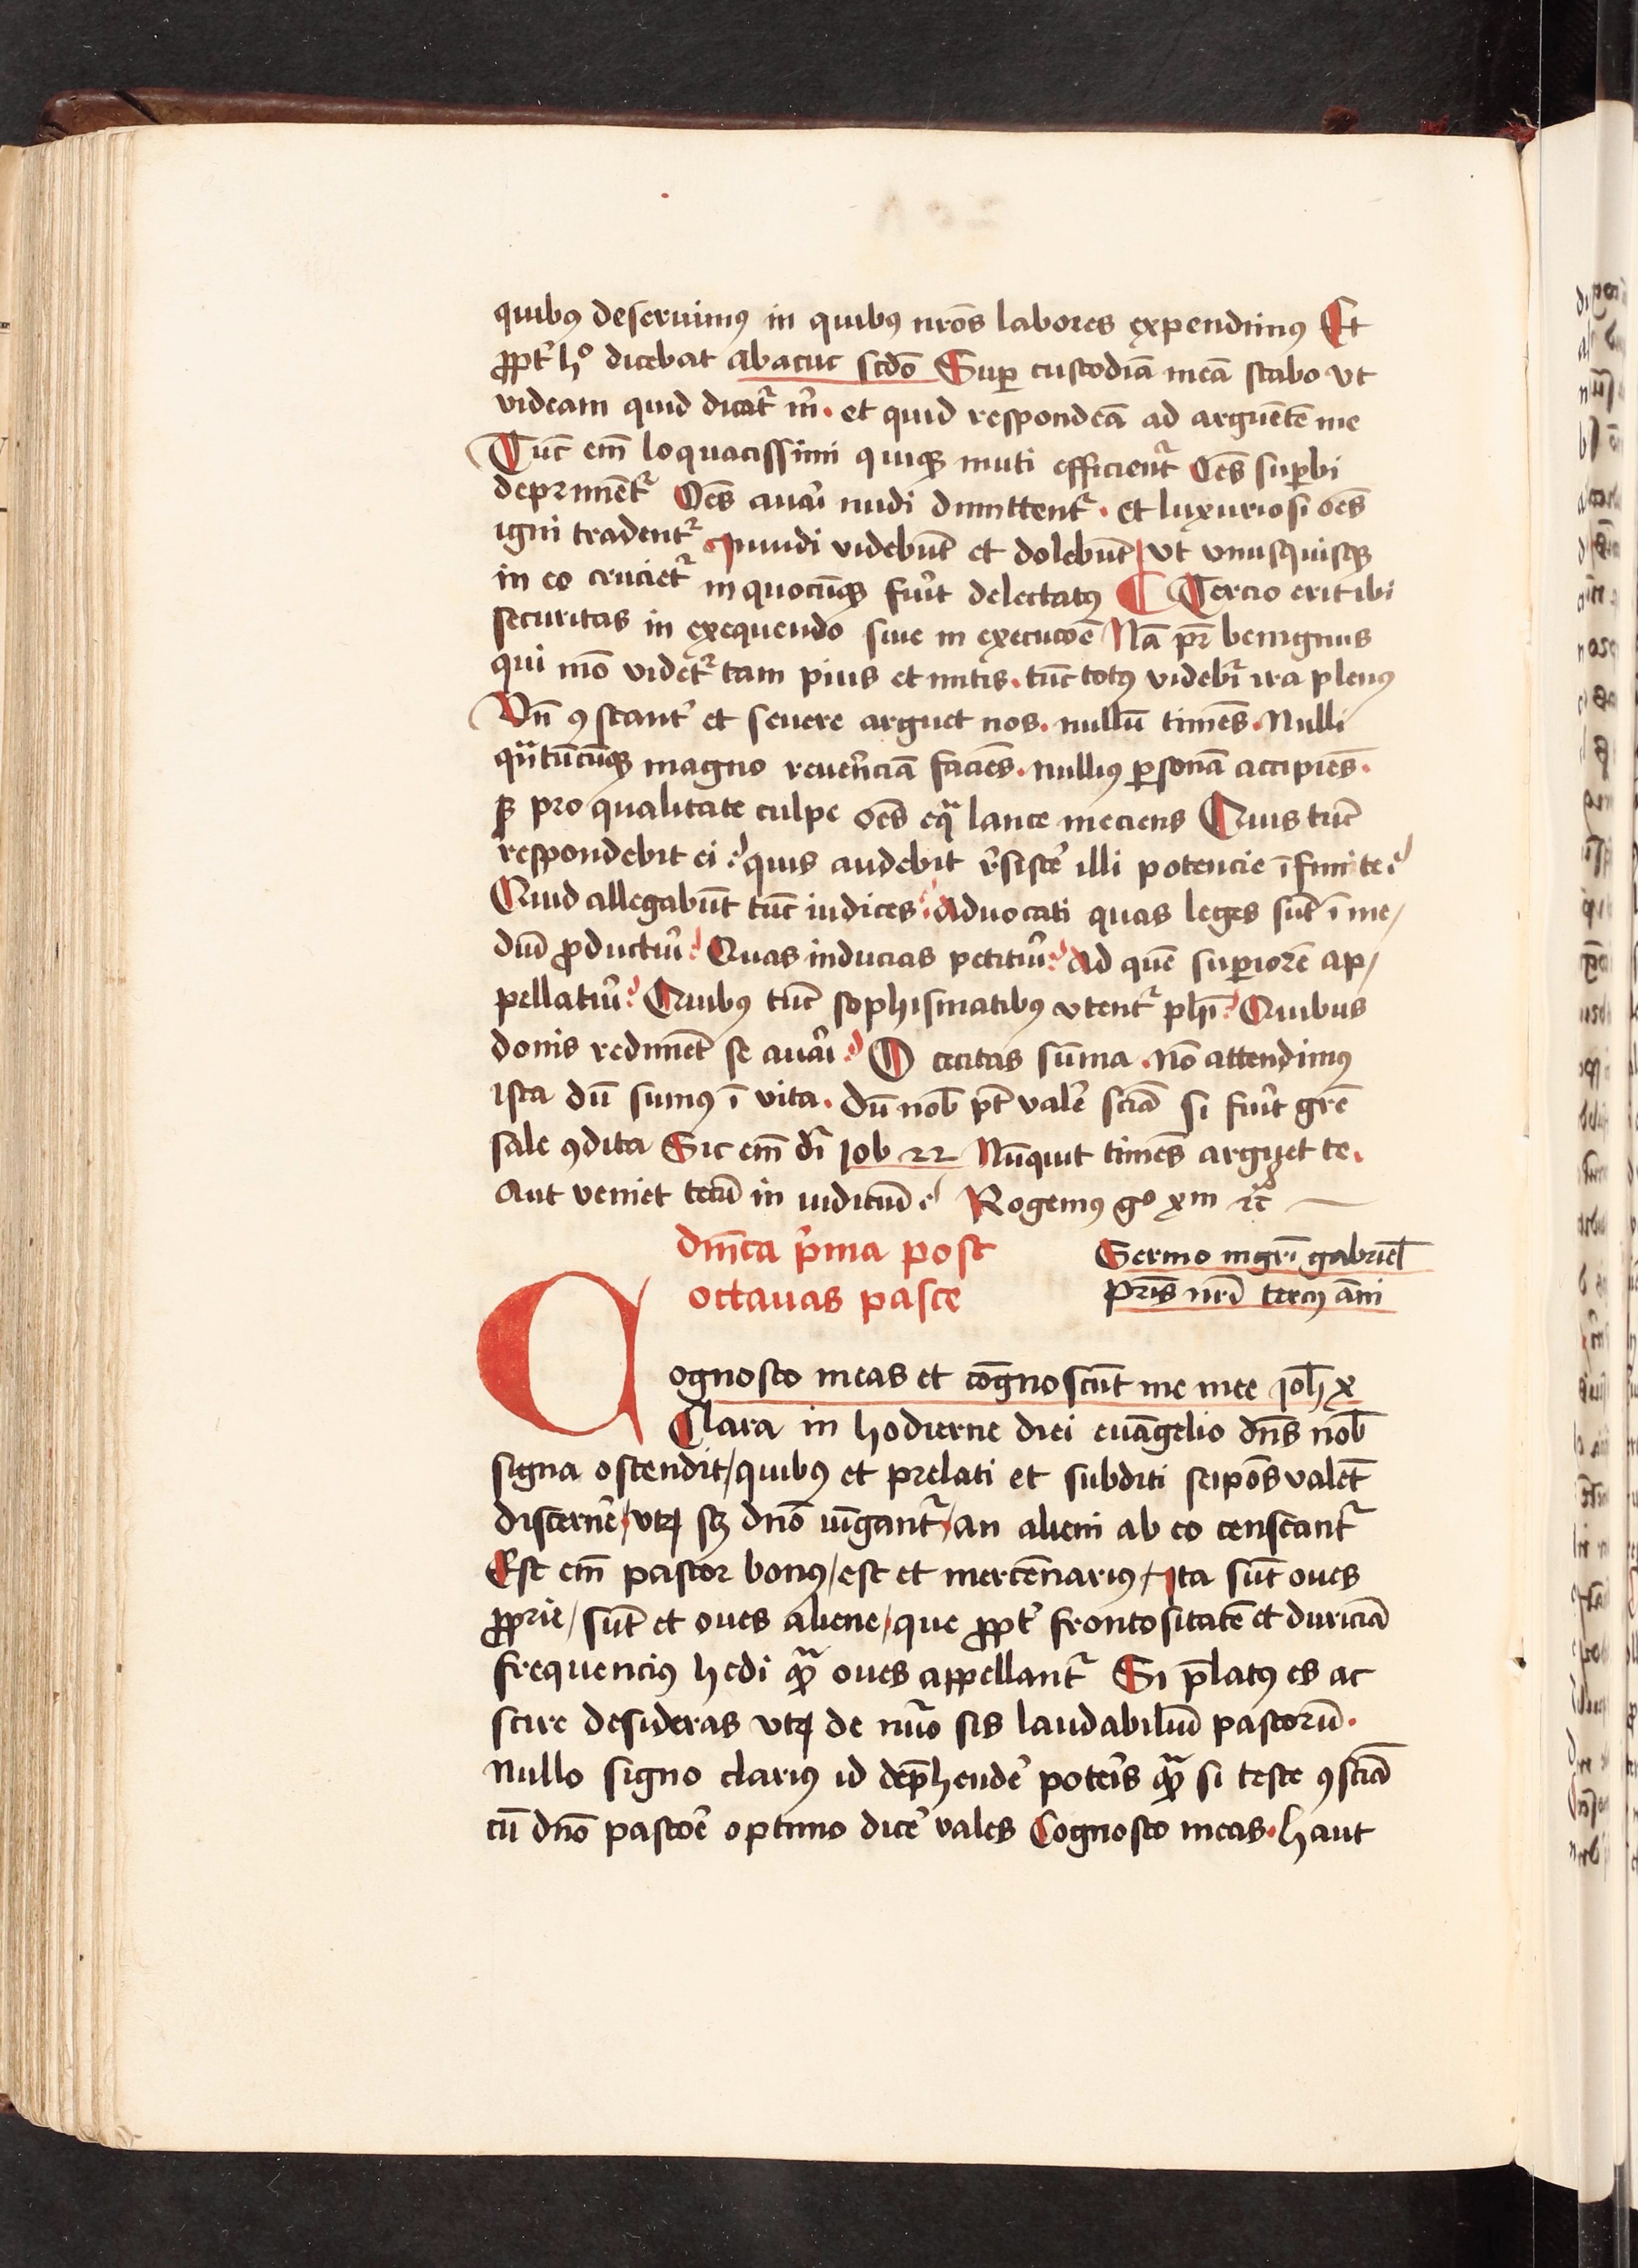 quibꝰ deseruimꝰ in quibꝰ nr̄os labores expendimꝰ Et
ꝓpt̉ hº dicebat abacuc sc̄do Suꝑ custodiā meā stabo vt
videam quid dicat᷑ m̉. et quid respondeā ad arguētē me
Tūc em̄ loquacissimi quiqꝫ muti efficient᷑ Oēs suꝑbi
deprimēt᷑ Oēs auaī nudi dimittent᷑. et luxuriosi oēs
igni tradent᷑ Inuidi videbūt et dolebūt / vt vnusquisqꝫ
in eo cruciet᷑ in quocūqꝫ fuit̉ delectatꝰ ¶ Tercio erit ibi
securitas in exequendo siue in execucoē Nā pr̄ benignus
qui mō videt᷑ tam pius et mitis. tūc totꝰ videbit᷑ ira plenꝰ
Vn̄ ꝯstant̉ et seuere arguet nos. nullū timēs. Nulli
qͣntūcūqꝫ magno reuer̉nciā faciēs. nulliꝰ ꝑsonā accipiēs.
sꝫ pro qualitate culpe oēs eqͣ lance meciens Quis tūc
respondebit ei? quis audebit r̉sister̉ illi potencie īfinite?
Quid allegabūt tūc iudices? Aduocati quas leges sūt ī me/
diū ꝓducturỉ? Quas inducias petiturỉ? Ad quē suꝑiorē ap/
pellaturỉ? Quibꝰ tūc sophismatibꝰ vtent᷑ ph̄i? Quibus
donis rediment̄ se auarỉ? O cecitas sūma. nō attendimꝰ
ista dū sumꝰ ī vita. dū nob̄ pt̄ valer̉ sciā si fuit̉ gr̄e
sale ꝯdita Sic em̄ dr̄ Job 22 Nūquit timēs arguet te.
Aut veniet tecū in iudiciū? Rogemꝰ gº xm̄ ⁊c̄
dn̄ica p̉ma post
octauas pasce
Sermo mgr̄i gabriel̄
pr̄is nr̄i tercij āni
Cognosco meas et cōgnoscūt me mee Joh̄ x
Clara in hodierne diei euāgelio dn̄s nob̄
signa ostendit / quibꝰ et prelati et subditi seipōs valēt
discerner̉ / vtꝝ sꝫ dn̄o iūgant᷑ / an alieni ab eo censeant᷑
Est em̄ pastor bonꝰ / est et mercēnariꝰ / Ita sūt oues
ꝓprie / sūt et oues aliene / que ꝓpt̉ frontositatē et duriciā
frequenciꝰ hedi qͣꝫ oues appellant᷑ Si p̄latꝰ es ac
scire desideras vtꝝ de nūo sis laudabiliū pastorū.
nullo signo clariꝰ id dep̄hender̉ poter̉is qͣꝫ si teste ꝯsciā
cū dn̄o pastoē optimo dicer̉ vales Cognosco meas. haut